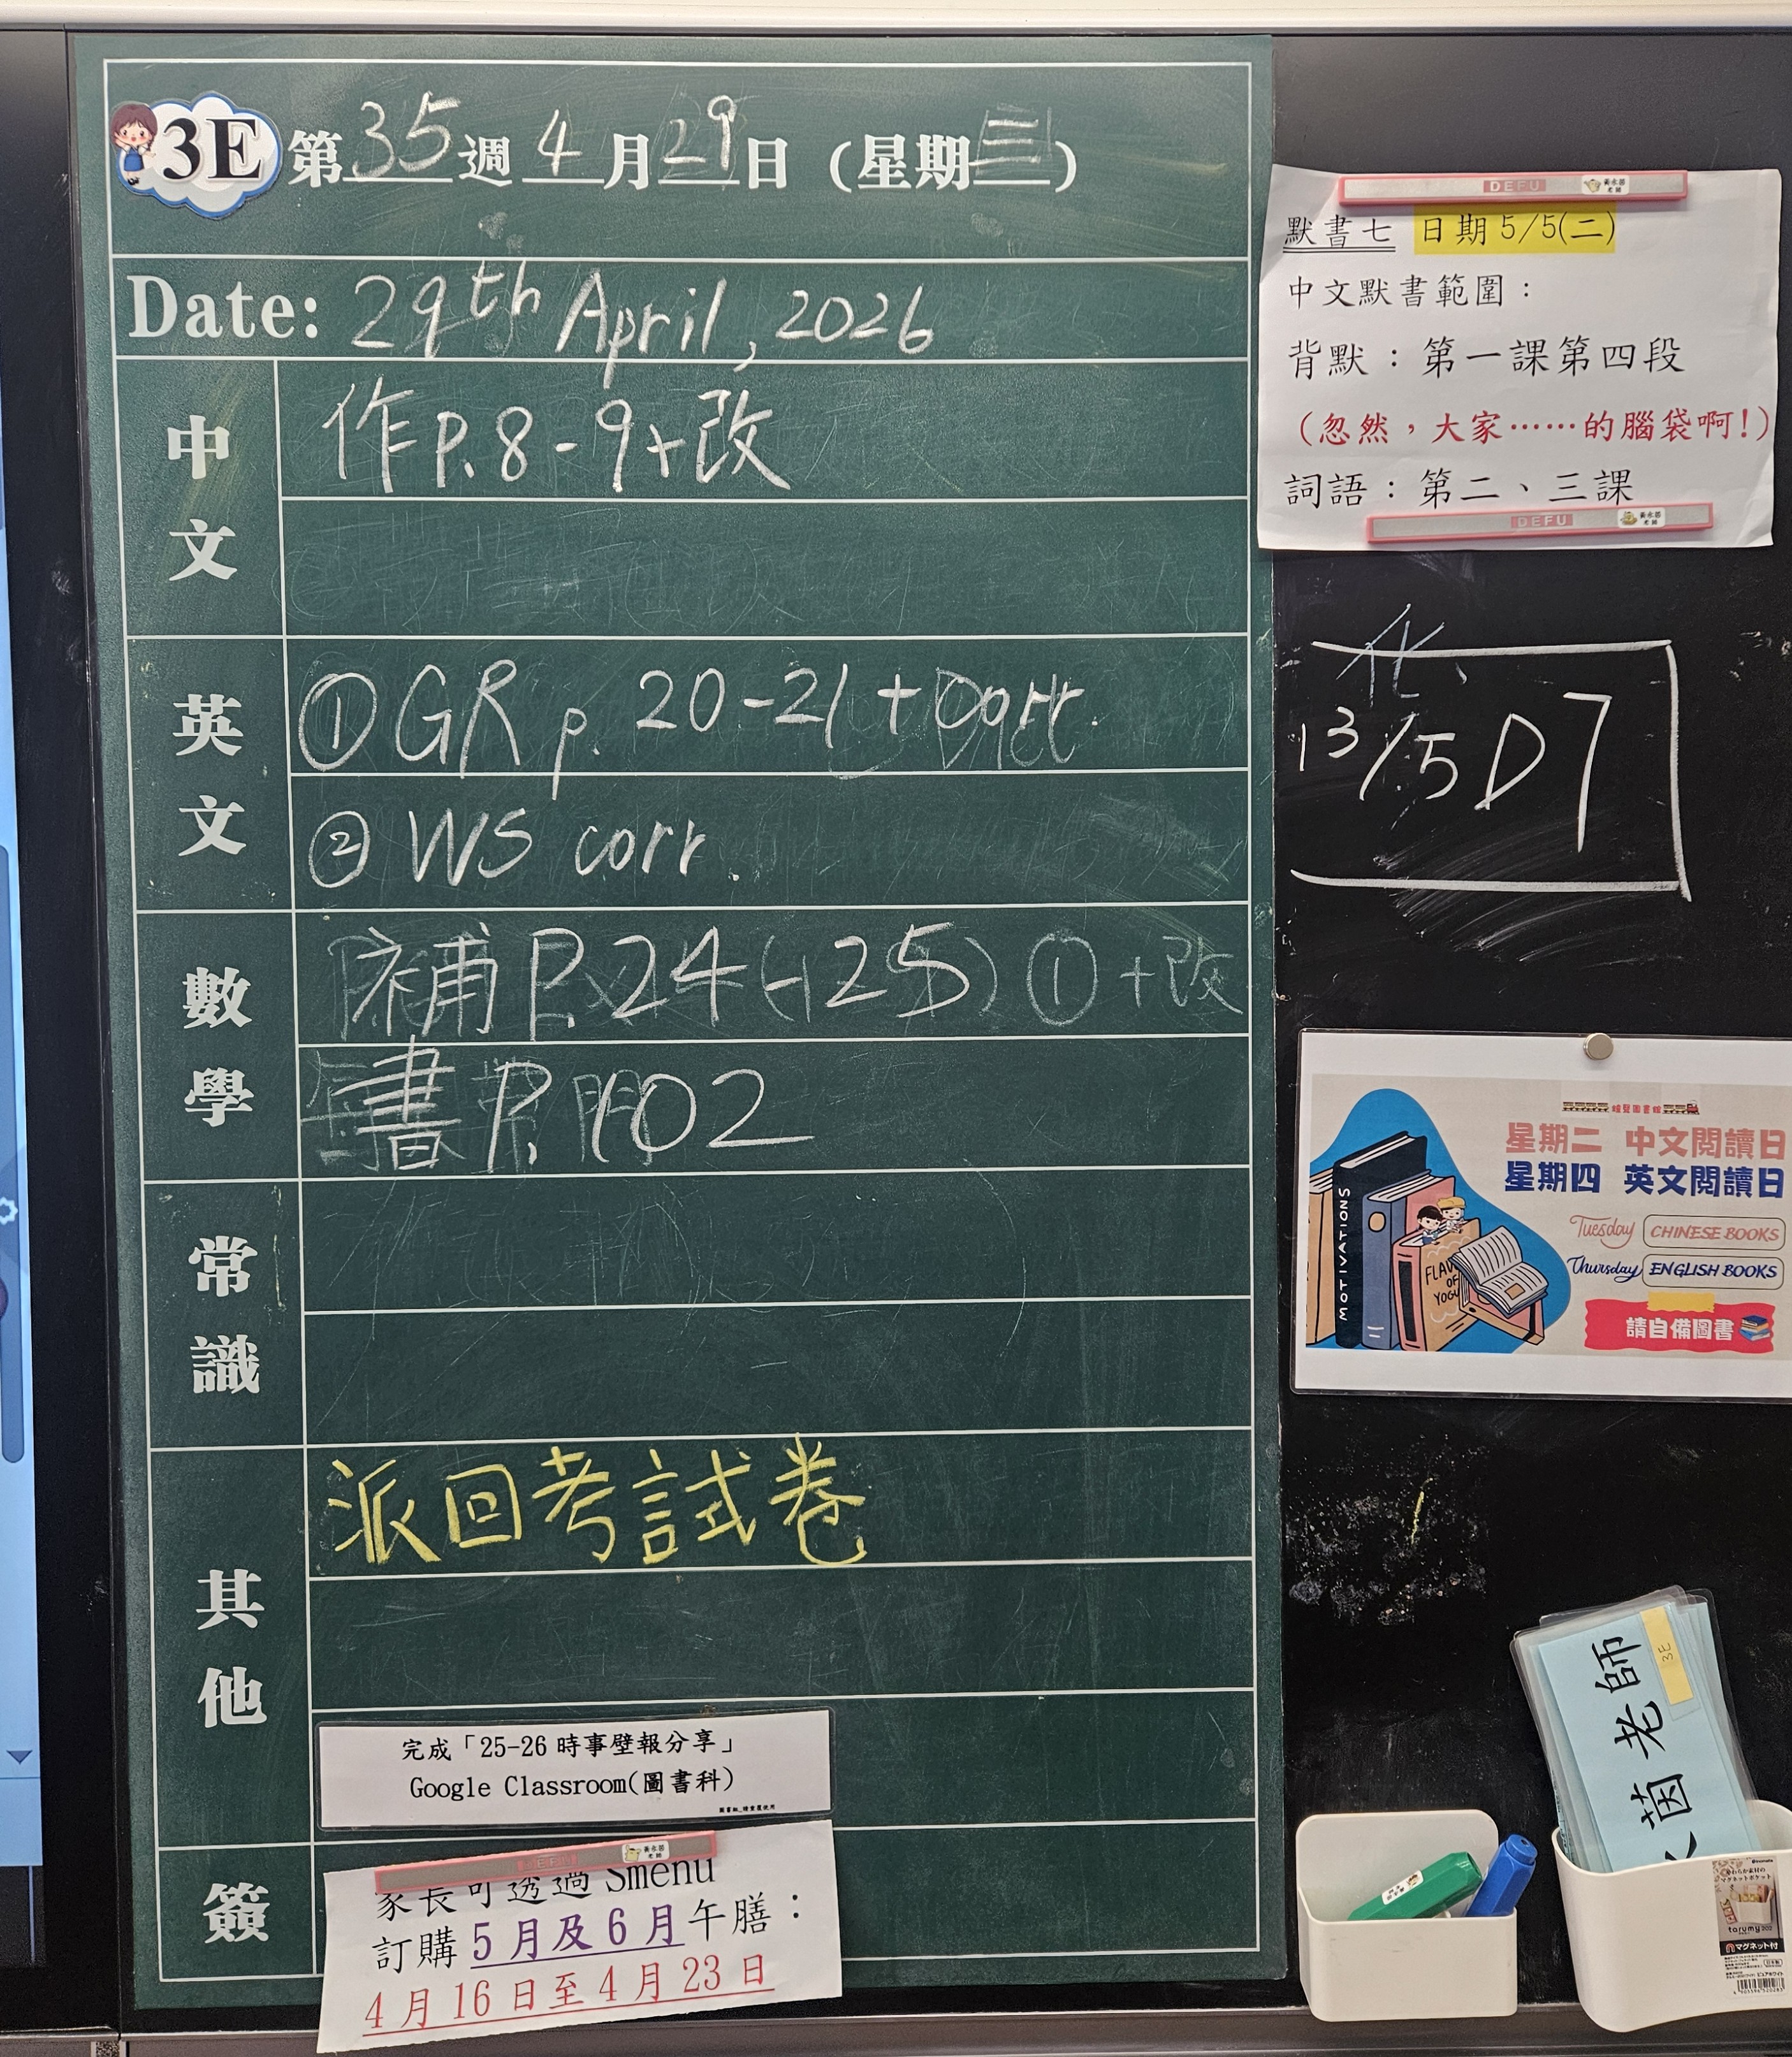 3E 第35週 4月29日 (星期三)
Date: 29th April, 2026
中文
作 P. 8 - 9 + 改
英文
① GR p. 20 - 21 + Corr.
② WS corr.
數學
補 P. 24 (-25) ① + 改
書 P. 102
常識
其他
派回考試卷
完成「25-26 時事壁報分享」
Google Classroom(圖書科)
簽
家長可透過 Smenu
訂購 5 月及 6 月午膳：
4 月 16 日至 4 月 23 日
DEFU
默書七 日期 5/5(二)
中文默書範圍：
背默：第一課第四段
（忽然，大家……的腦袋啊!）
詞語：第二、三課
DEFU
13/5 D7
星期二 中文閱讀日
星期四 英文閱讀日
Tuesday CHINESE BOOKS
Thursday ENGLISH BOOKS
請自備圖書
MOTIVATIONS
3E
茵老師
マグネット付